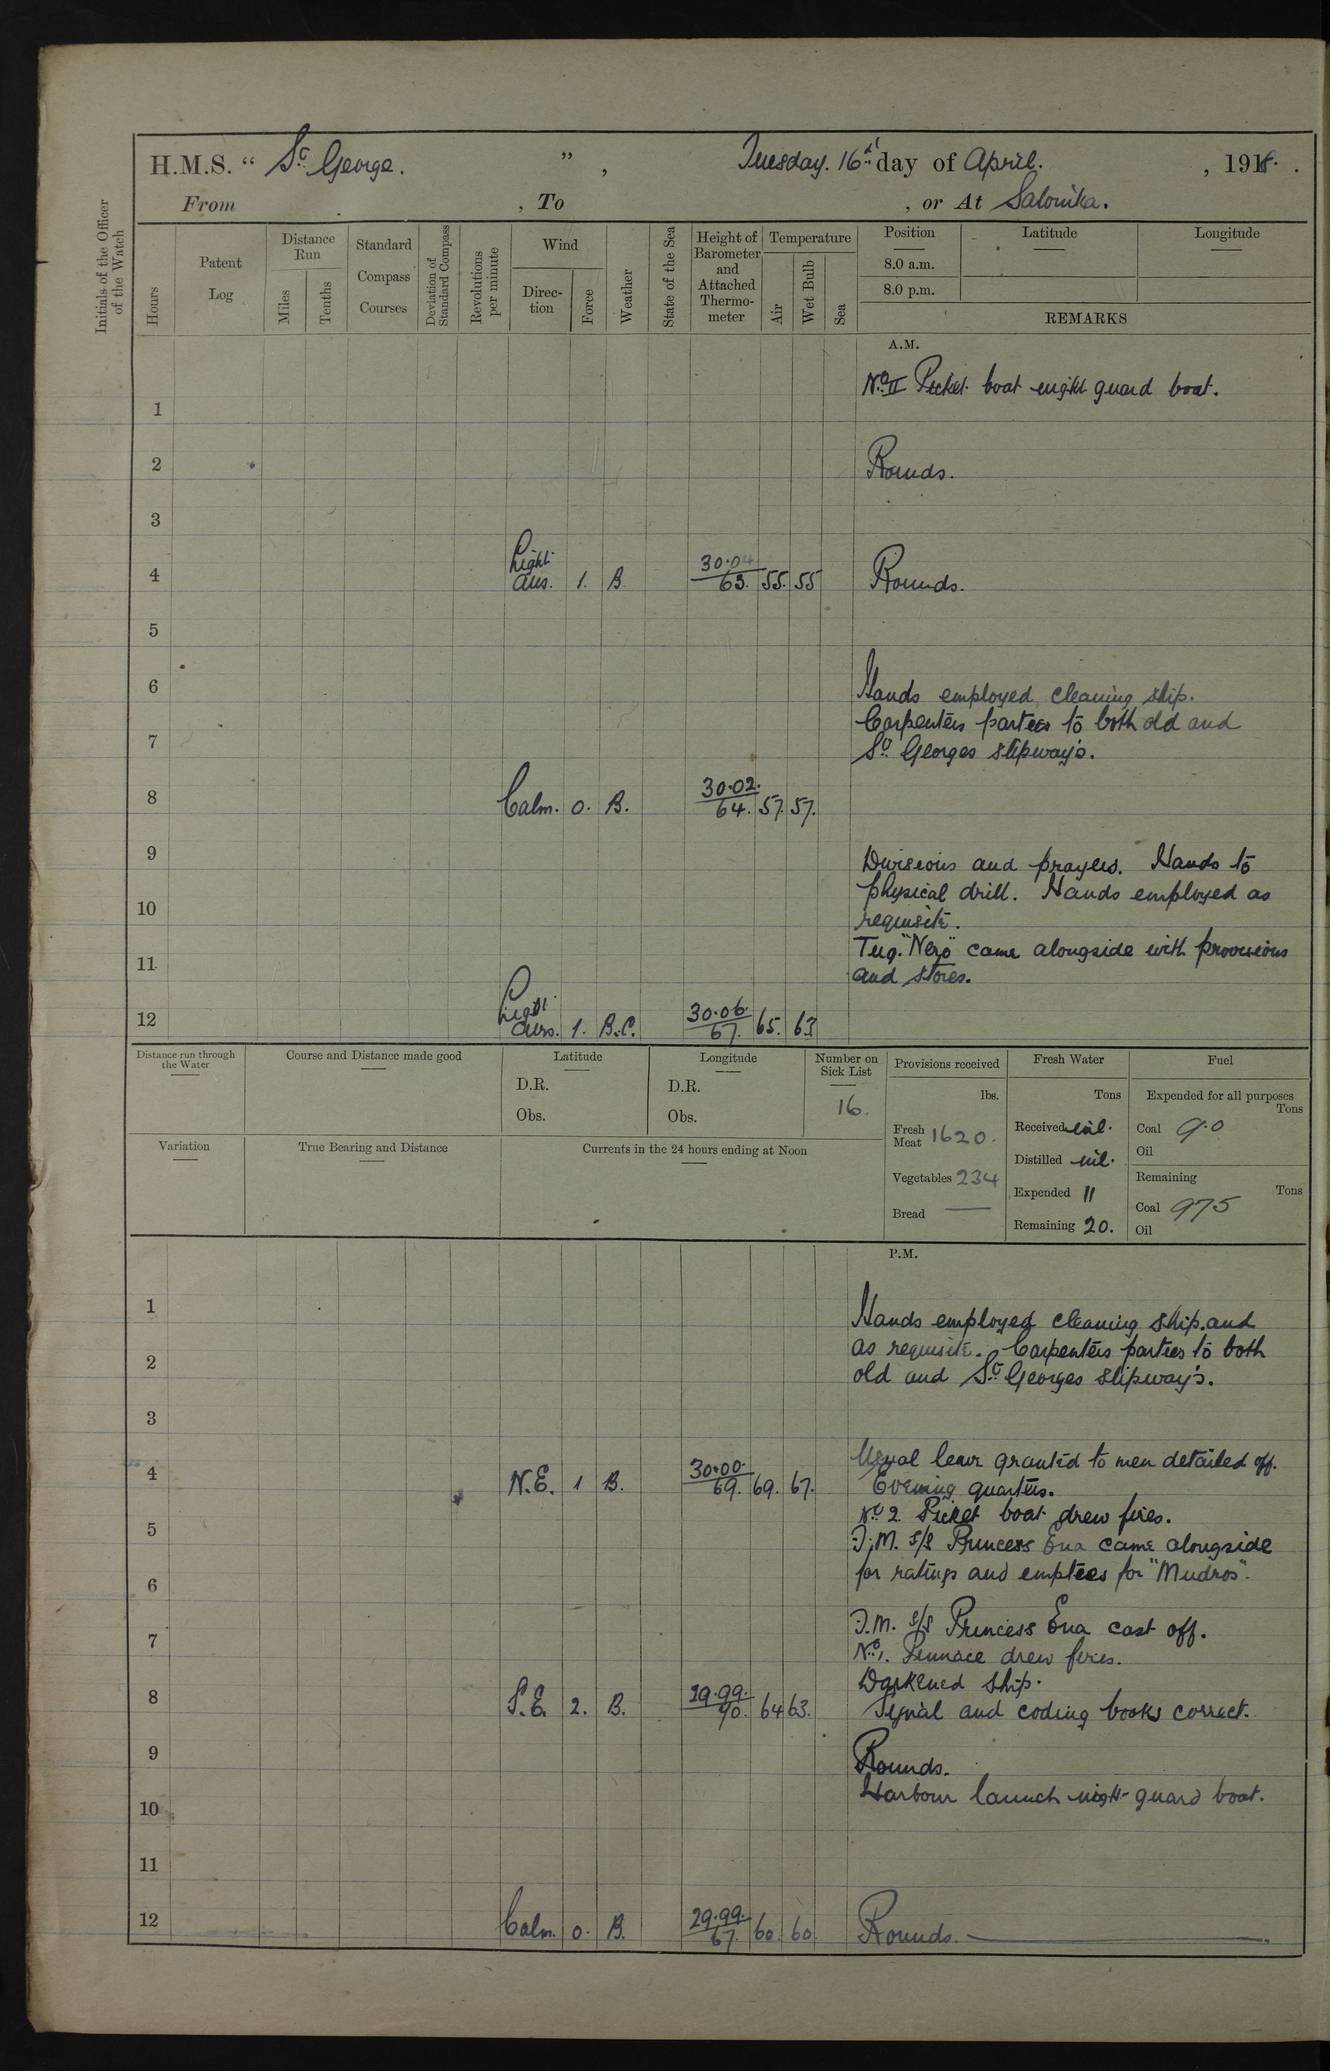 H.M.S. “ St George. ” , Tuesday. 16th day of April. , 1918. .
From , To , or At Salonika.
Initials of the Officer of the Watch
Hours
Patent Log
Distance Run
Miles
Tenths
Standard Compass Courses
Deviation of Standard Compass
Revolutions per minute
Wind
Direc- tion
Force
Weather
State of the Sea
Height of Barometer and Attached Thermo- meter
Temperature
Air
Wet Bulb
Sea
Position Latitude Longitude
8.0 a.m.
8.0 p.m.
REMARKS
A.M.
No. II Picket boat night guard boat.
1
2 Rounds.
3
Light 30.04
4 airs. 1. B. 63. 55. 55 Rounds.
5
6 Hands employed cleaning ship.
Carpenters parties to both old and
7 St. Georges slipway's.
30.02.
8 Calm. 0. B. 64. 57. 57.
9 Divisions and prayers. Hands to
physical drill. Hands employed as
10 requisite.
Tug. "Nero" came alongside with provisions
11 and stores.
Light 30.06.
12 airs. 1. B.C. 67. 65. 63
Distance run through the Water
Course and Distance made good
Latitude
D.R.
Obs.
Longitude
D.R.
Obs.
Number on Sick List
16.
Provisions received
lbs.
Fresh Meat 1620.
Vegetables 234
Bread —
Fresh Water
Tons
Received nil.
Distilled nil.
Expended 11
Remaining 20.
Fuel
Expended for all purposes
Tons
Coal 90
Oil
Remaining
Tons
Coal 975
Oil
Variation
True Bearing and Distance
Currents in the 24 hours ending at Noon
P.M.
1 Hands employed cleaning ship. and
2 as requisite. Carpenters parties to both
old and St. Georges slipway's.
3
Usual leave granted to men detailed off.
30.00.
4 N.E. 1 B. 69. 69. 67. Evening quarters.
No 2 Picket boat drew fires.
5 F.M. s/s Princess Ena came alongside
6 for ratings and empties for "Mudros".
F.M. s/s Princess Ena cast off.
7 No. 1. Pinnace drew fires.
Darkened ship.
29.99.
8 S.E. 2. B. 70. 64 63. Signal and coding books correct.
9 Rounds.
10 Harbour launch night guard boat.
11
29.99.
12 Calm. 0. B. 67. 60. 60 Rounds.